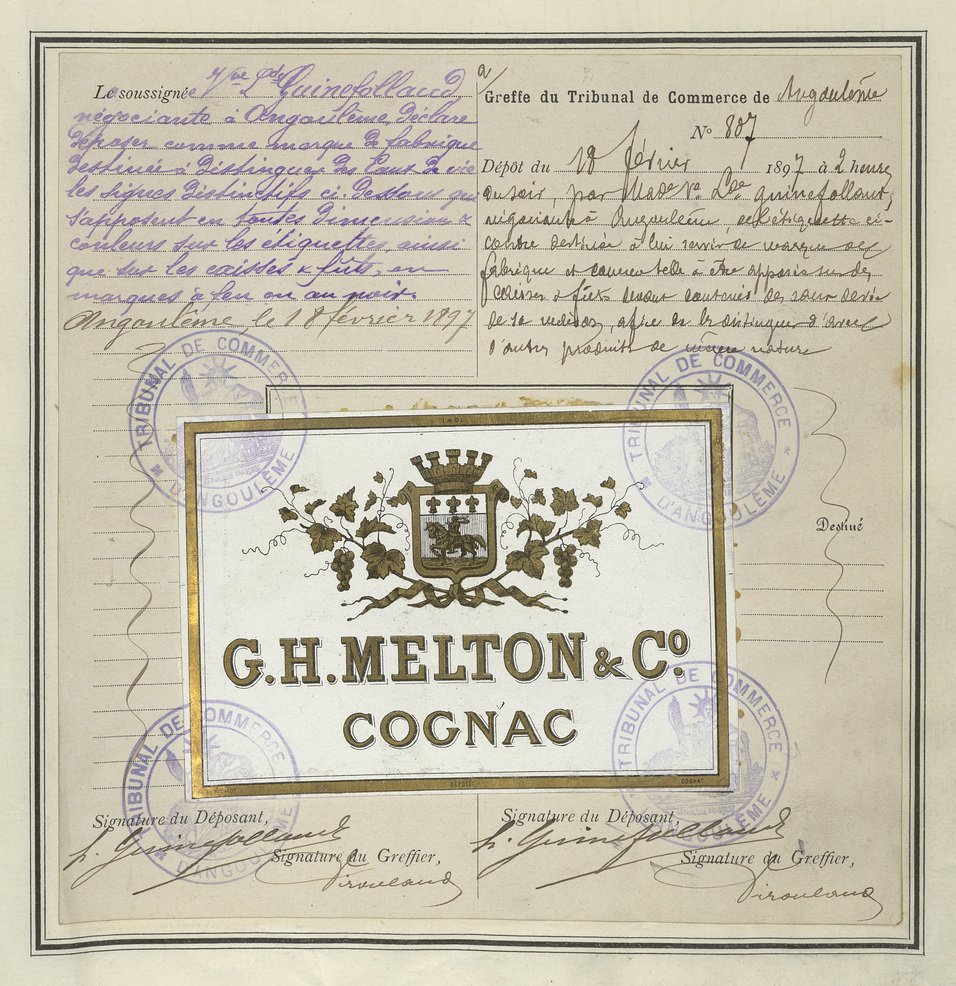 Le soussignée Vve Lde Guinefollaud
négociante à Angoulême, Déclare
Déposer comme marque de fabrique
destinée à distinguer des Eaux de vie
les signes distinctifs ci-dessous qui
s'apposent en toutes dimensions &
couleurs sur les étiquettes, ainsi
que sur les caisses & fûts, en
marques à feu ou au noir.
Angoulême, le 18 février 1897
Greffe du Tribunal de Commerce de Angoulême
No 887
Dépôt du 18 février 1897 à 2 heures
du soir, par Made Ve Lde Guinefollaud,
négociante à Angoulême, de l'étiquette ci-
contre destinée à lui servir de marque de
fabrique et comme telle à être apposée sur des
caisses & fûts devant contenir des eaux de vie
de sa maison, afin de les distinguer d'avec
d'autres produits de même nature
TRIBUNAL DE COMMERCE
D'ANGOULÊME
TRIBUNAL DE COMMERCE
D'ANGOULÊME
Destiné
G.H. MELTON & Co
COGNAC
DÉPOSÉ
COGNAC
TRIBUNAL DE COMMERCE
D'ANGOULÊME
TRIBUNAL DE COMMERCE
D'ANGOULÊME
Signature du Déposant,
L. Guinefollaud
Signature du Greffier,
Signature du Déposant,
L. Guinefollaud
Signature du Greffier,